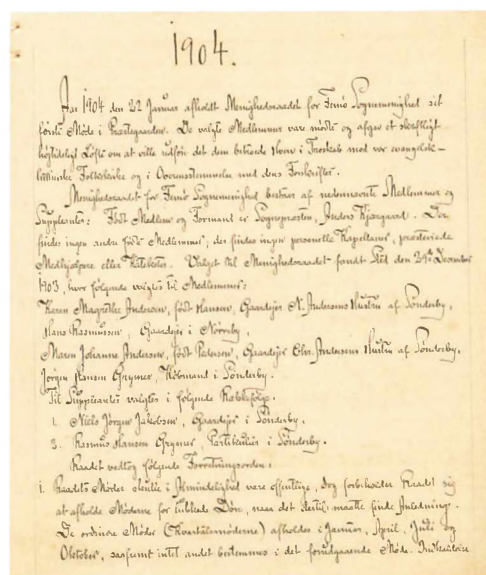 1904.
Aar 1904 den 22 Januar afholdt Menighedsraadet for Femø Sognemenighed sit
første Møde i Præstegaarden. De valgte Medlemmer vare mødte og afgav et skriftligt
højtideligt Løfte om at ville udføre det dem betroede Hverv i Troskab mod vor evangelisk-
lutherske Folkekirke og i Overensstemmelse med dens Forskrifter.
Menighedsraadet for Femø Sognemenighed bestaar af nedennævnte Medlemmer og
Suppleanter: Født Medlem og Formand er Sognepræsten, Anders Kjærgaard. Der
findes ingen andre fødte Medlemmer; der findes ingen personelle Kapellaner, præsteviede
Medhjælpere eller Kateketer. Valget til Menighedsraadet fandt Sted den 29de December
1903, hvor følgende valgtes til Medlemmer:
Karen Magrethe Andersen, født Hansen, Gaardejer N. Andersens Hustru af Sønderby,
Hans Rasmussen, Gaardejer i Nørreby,
Maren Johanne Andersen, født Pedersen, Gaardejer Chr. Andersens Hustru af Sønderby,
Jørgen Hansen Grymer, Købmand i Sønderby.
Til Suppleanter valgtes i følgende Rækkefølge.
1. Niels Jørgen Jakobsen, Gaardejer i Sønderby.
2. Rasmus Hansen Grymer, Partikulier i Sønderby.
Raadet vedtog følgende Forretningsorden:
1. Raadets Møder skulle i Almindelighed være offentlige, dog forbeholder Raadet sig
at afholde Møderne for lukkede Døre, naar det dertil maatte finde Anledning.
De ordinære Møder (Kvartalsmøderne) afholdes i Januar, April, Juli og
Oktober, saafremt intet andet bestemmes i det forudgaaende Møde.